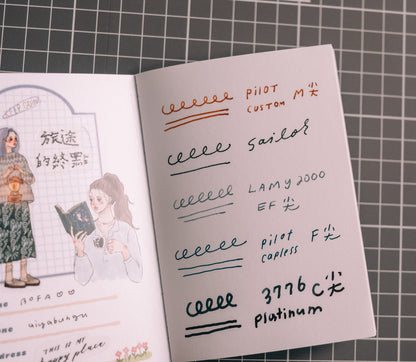 旅途
的終點
me BOFA♡♡
me
address THIS IS MY
happy place
PILOT
CUSTOM M尖
Sailor
LAMY 2000
EF尖
Pilot
capless F尖
3776 C尖
platinum